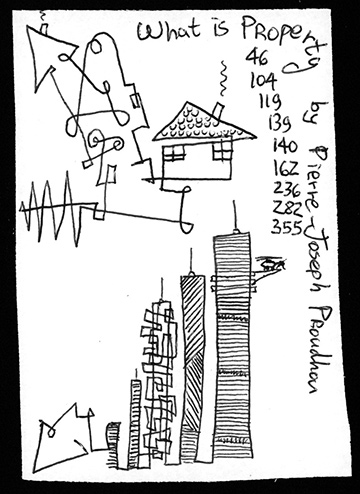 What is Property by Pierre-Joseph Proudhon
46
104
119
139
140
162
236
282
355